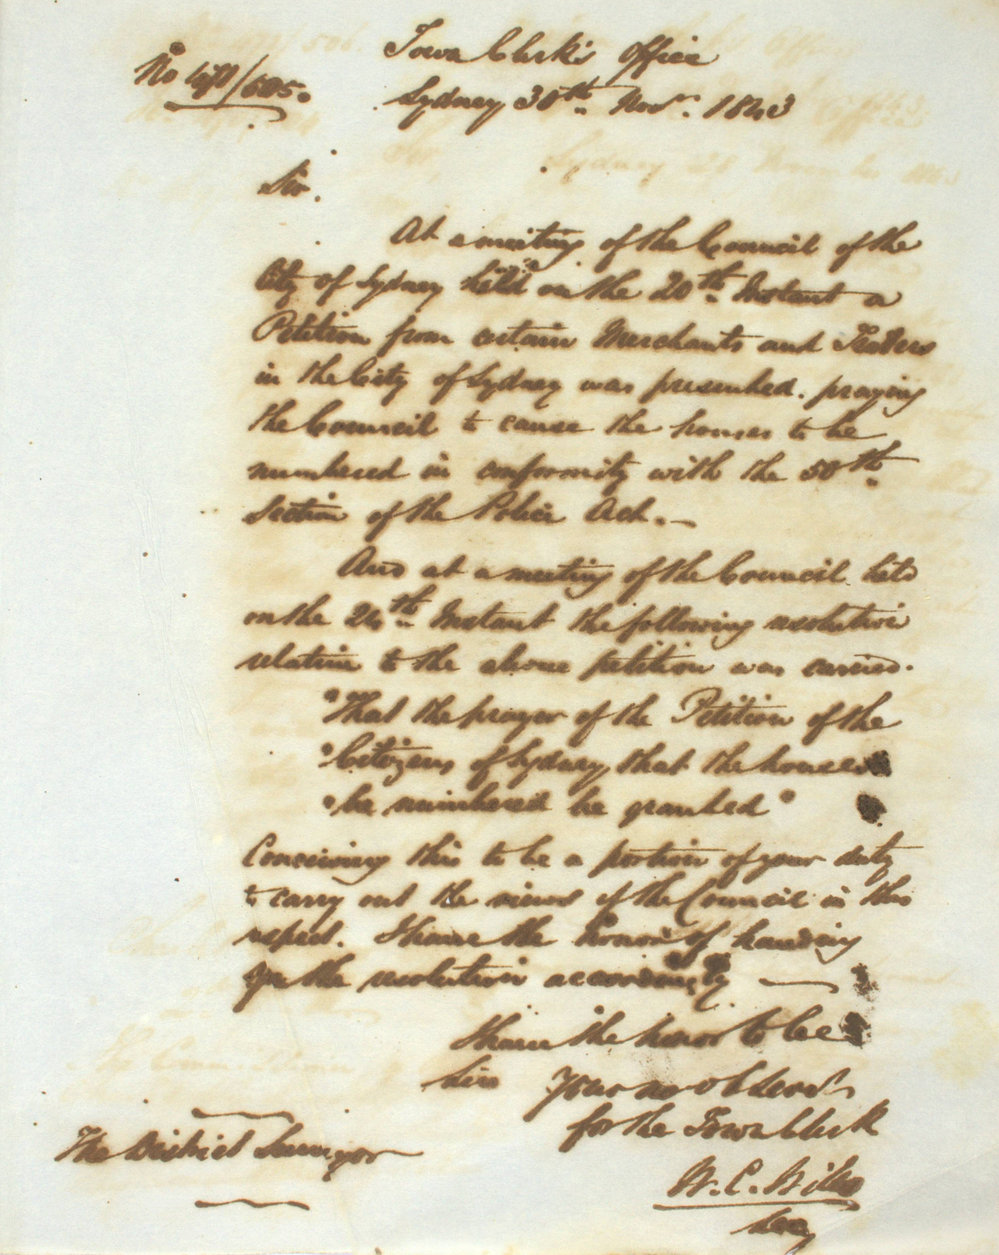 Town Clerk's Office
No 47/605.
Sydney 30th Novr. 1843
Sir.
At a meeting of the Council of the
City of Sydney held on the 20th Instant a
Petition from certain Merchants and Traders
in the City of Sydney was presented. praying
the Council to cause the houses to be
numbered in conformity with the 50th
Section of the Police Act.
And at a meeting of the Council held
on the 24th Instant the following resolution
relative to the above petition was carried.
"That the prayer of the Petition of the
"Citizens of Sydney that the houses
"be numbered be granted"
Conceiving this to be a portion of your duty
to carry out the views of the Council in this
respect. I have the honor of handing
you the resolution accordingly
I have the honor to be
Sir
Your mo ob Servt
for the Town Clerk
The District Surveyor
W. C.